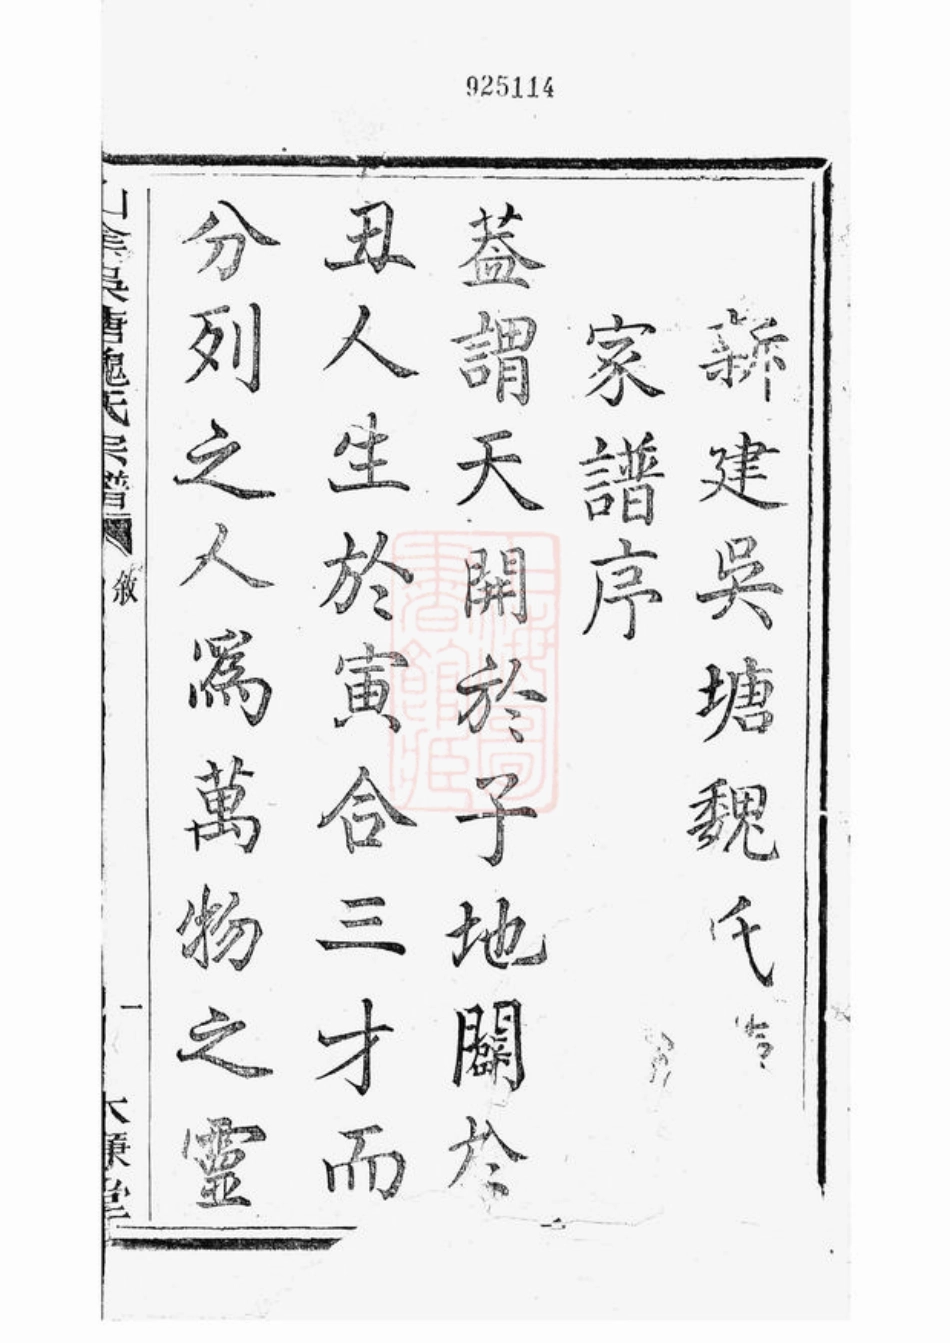 925114
新建吳塘魏氏
家譜序
葢謂天開於子地闢於
丑人生於寅合三才而
分列之人爲萬物之靈
吳塘魏氏宗譜
敘
一